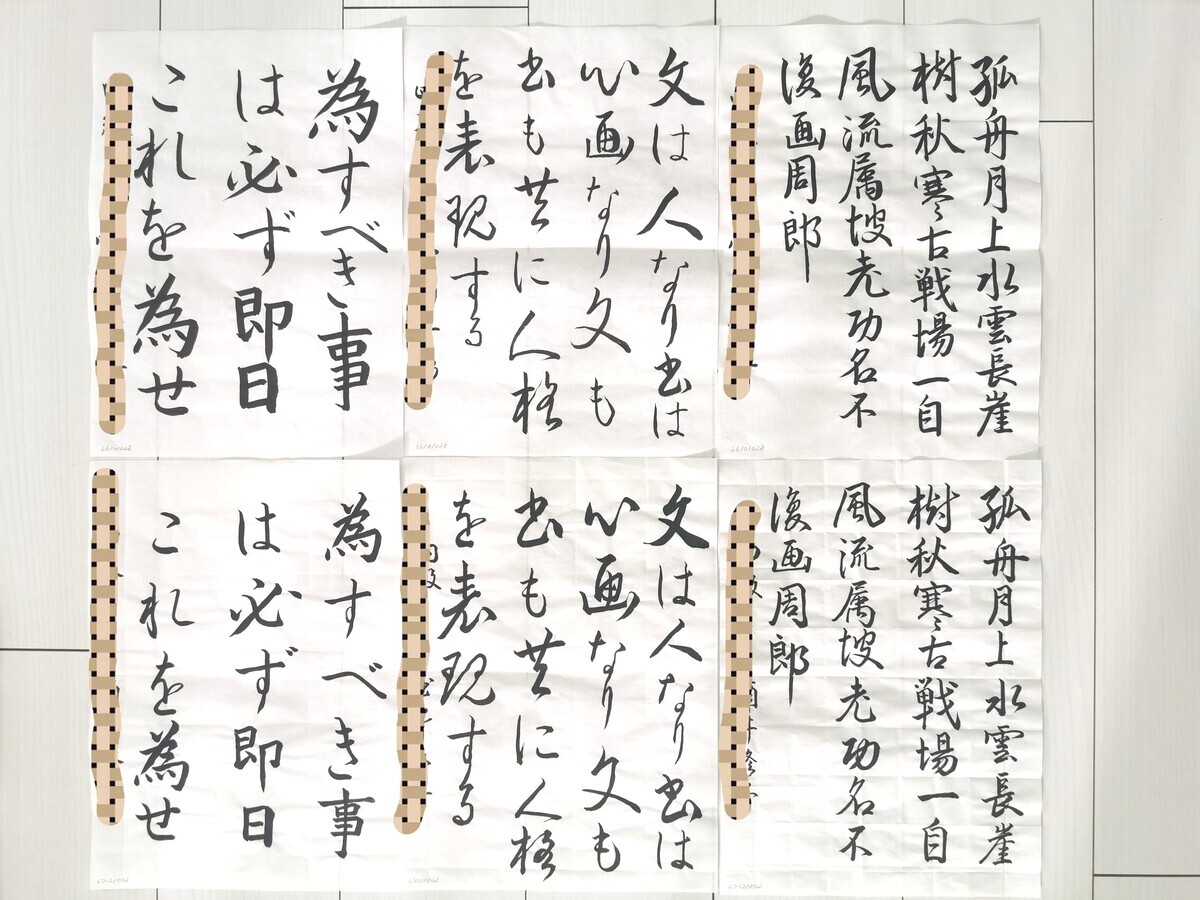 孤舟月上水雲長崖
樹秋寒古戦場一自
風流属坡老功名不
復画周郎
文は人なり書は
心画なり文も
書も共に人格
を表現する
為すべき事
は必ず即日
これを為せ
孤舟月上水雲長崖
樹秋寒古戦場一自
風流属坡老功名不
復画周郎
文は人なり書は
心画なり文も
書も共に人格
を表現する
為すべき事
は必ず即日
これを為せ